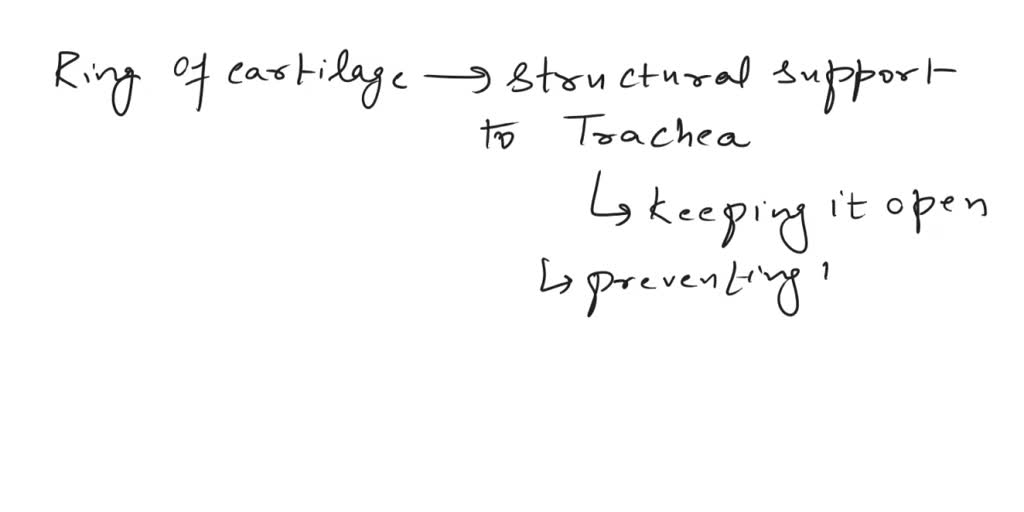 Ring of cartilage → structural support
to Trachea
↳ keeping it open
↳ preventing